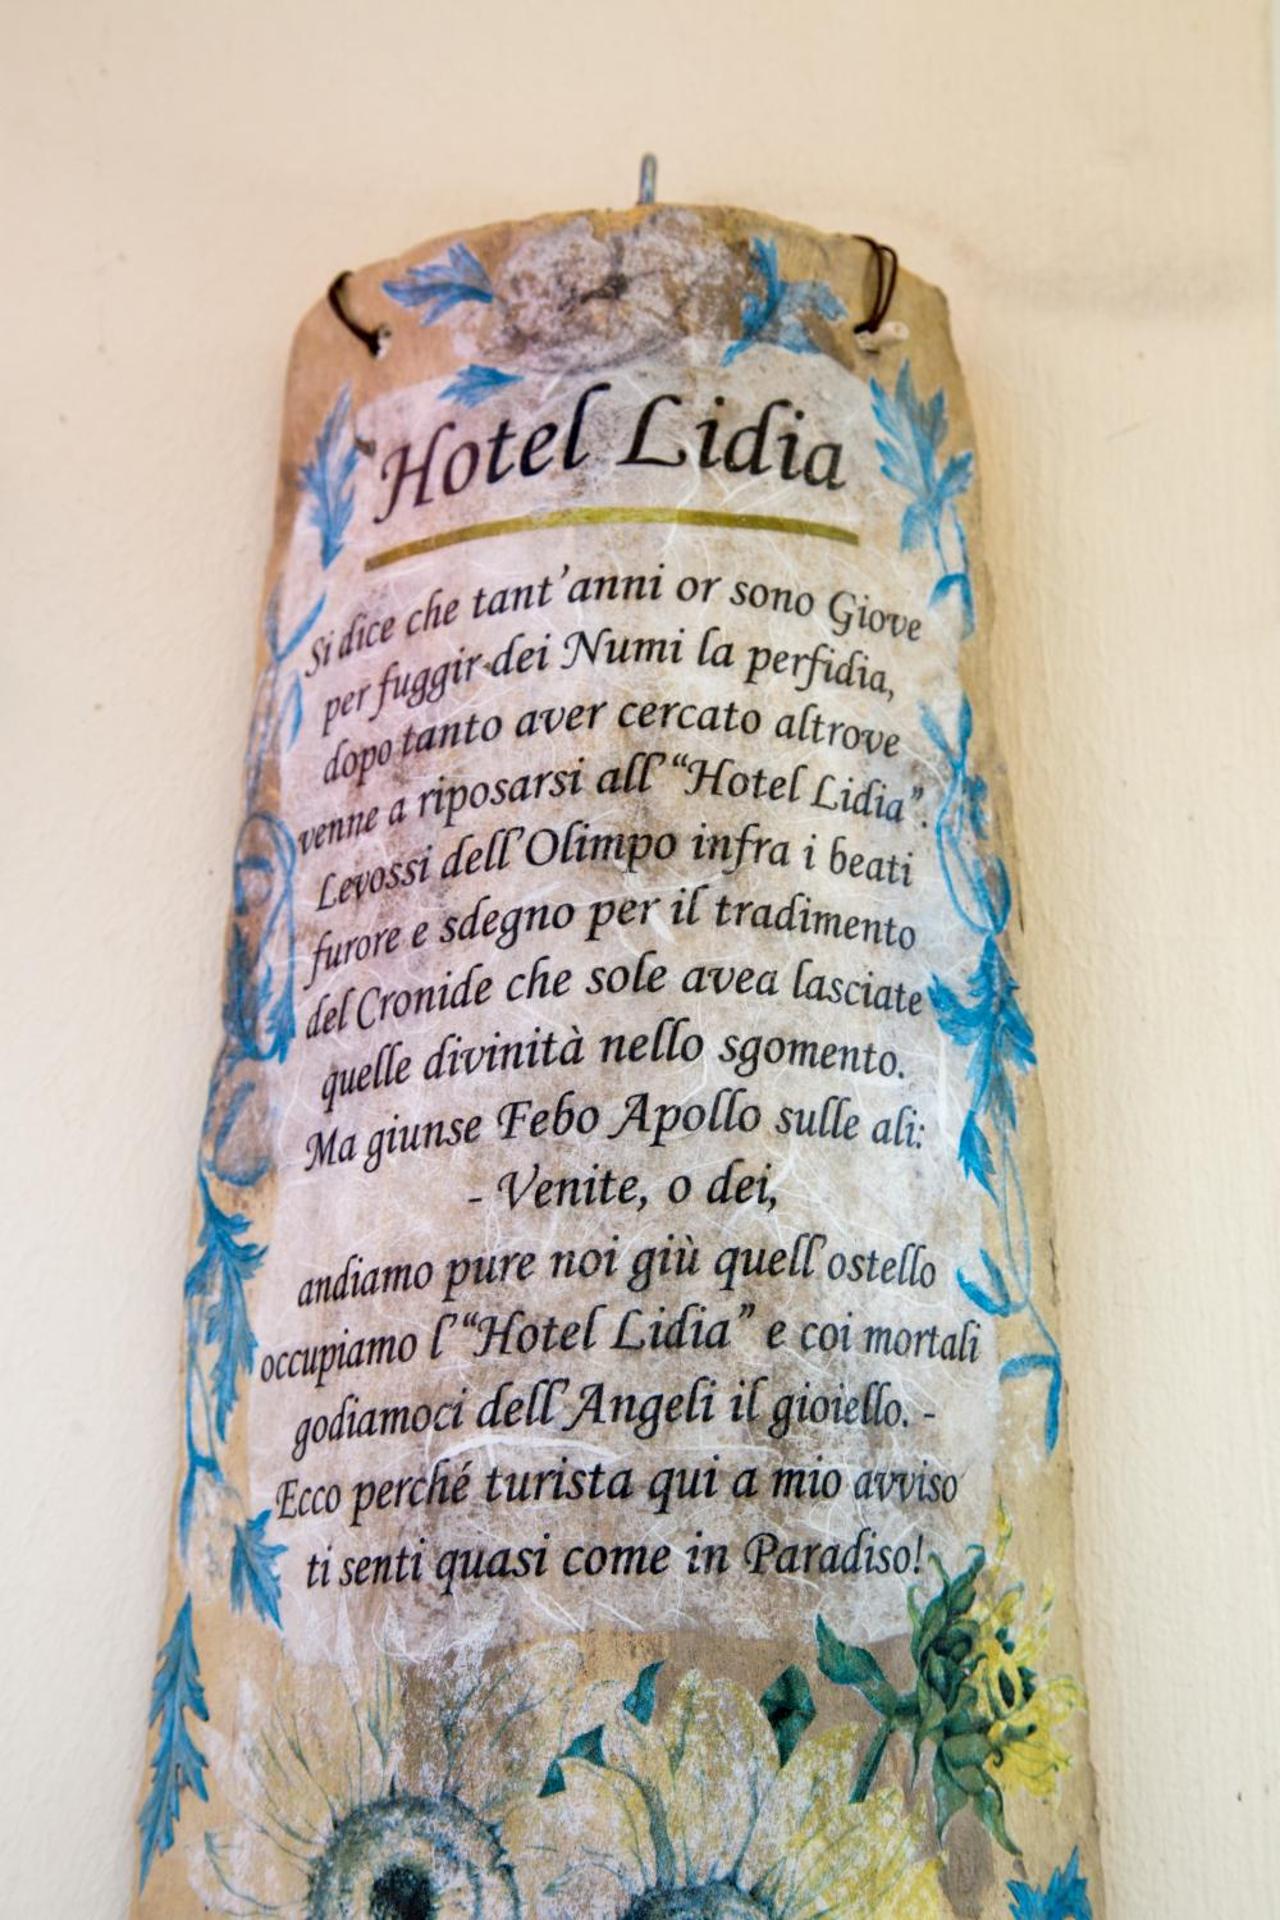 Hotel Lidia
Si dice che tant'anni or sono Giove
per fuggir dei Numi la perfidia,
dopo tanto aver cercato altrove
venne a riposarsi all'“Hotel Lidia”.
Levossi dell'Olimpo infra i beati
furore e sdegno per il tradimento
del Cronide che sole avea lasciate
quelle divinità nello sgomento.
Ma giunse Febo Apollo sulle ali:
- Venite, o dei,
andiamo pure noi giù quell'ostello
occupiamo l'“Hotel Lidia” e coi mortali
godiamoci dell'Angeli il gioiello. -
Ecco perché turista qui a mio avviso
ti senti quasi come in Paradiso!